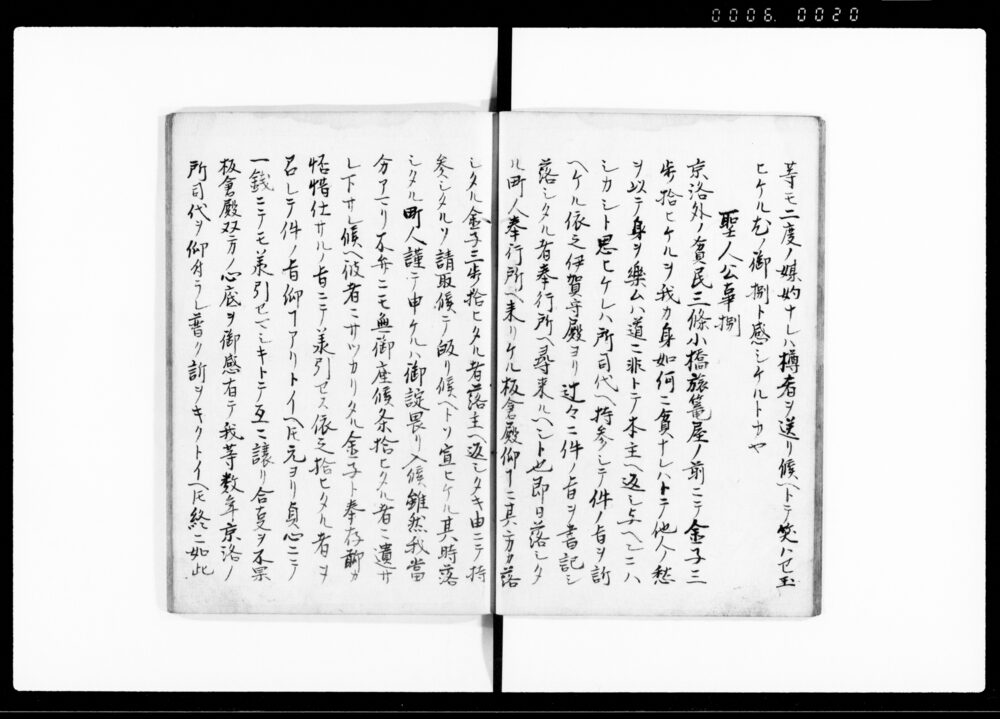 0006. 0020
等モ二度ノ媒妁ナレハ樽者ヲ送リ候ヘトテ笑ハセ玉
ヒケル尤ノ御捌ト感シケルトカヤ
聖人公事捌
京洛外ノ貧民三條小橋旅篭屋ノ前ニテ金子三
歩拾ヒケルヲ我カ身如何ニ貧ナレハトテ他人ノ愁
ヲ以テ身ヲ樂ムハ道ニ非トテ本主ヘ返シ与ヘンニハ
シカシト思ヒケレハ所司代ヘ持参シテ件ノ旨ヲ訴
ヘケル依之伊賀守殿ヨリ辻々ニ件ノ旨ヲ書記シ
落シタル者奉行所ヘ尋来ルヘシト也即日落シタ
ル町人奉行所ヘ来リケル板倉殿仰ニ其方カ落
シタル金子三歩拾ヒタル者落主ヘ返シタキ由ニテ持
参シタルソ請取候テ皈リ候ヘトソ宣ヒケル其時落
シタル町人謹テ申ケルハ御諚畏リ入候雖然我當
分アマリ不弁ニモ無御座候条拾ヒタル者ニ遺サ
レ下サレ候ヘ彼者ニサツカリタル金子ト奉存聊カ
悋惜仕サルノ旨ニテ羕引セス依之拾ヒタル者ヲ
召シテ件ノ旨仰アリトイヘ𪜈元ヨリ貞心ニテ
一錢ニテモ羕引セマシキトテ互ニ譲リ合支ヲ不果
板倉殿双方ノ心底ヲ御感有テ我等数年京洛ノ
所司代ヲ仰付ラレ普ク訴ヲキクトイヘ𪜈終ニ如此